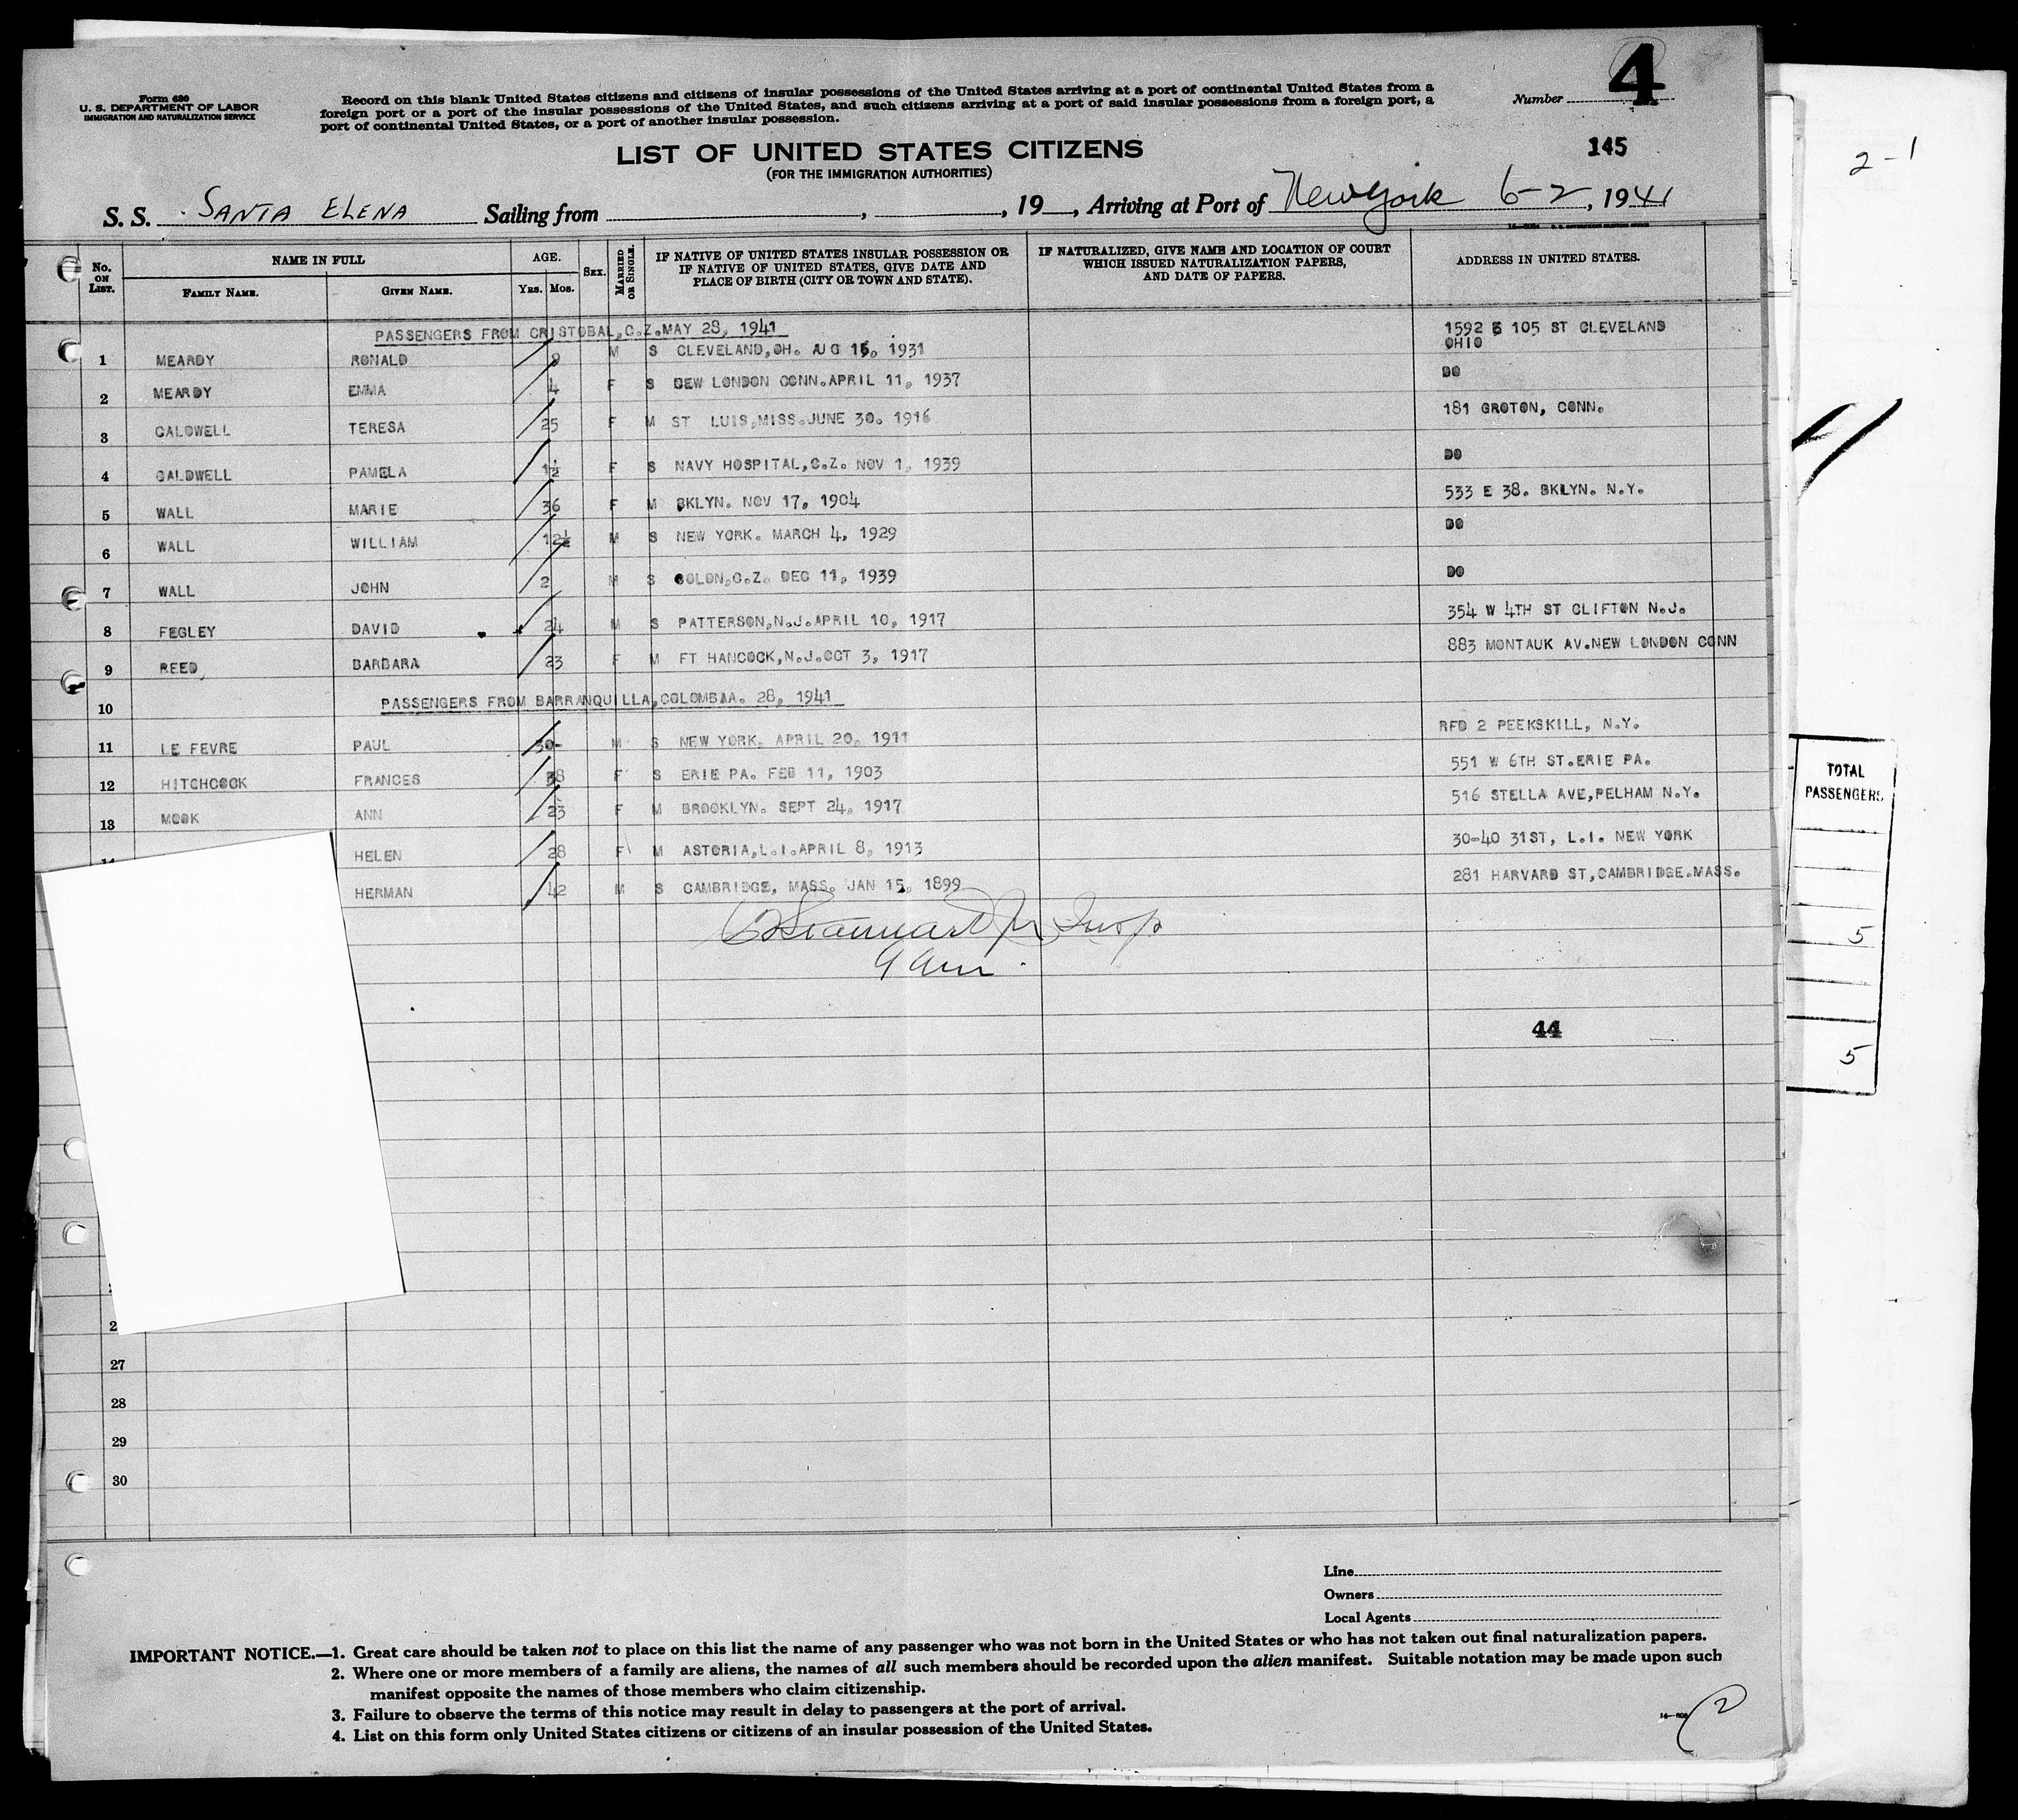 4
Form 630
U. S. DEPARTMENT OF LABOR
IMMIGRATION AND NATURALIZATION SERVICE
Record on this blank United States citizens and citizens of insular possessions of the United States arriving at a port of continental United States from a
foreign port or a port of the insular possessions of the United States, and such citizens arriving at a port of said insular possessions from a foreign port, a
port of continental United States, or a port of another insular possession.
Number
LIST OF UNITED STATES CITIZENS
(FOR THE IMMIGRATION AUTHORITIES)
145
2-1
S. S. SANTA ELENA Sailing from , , 19 , Arriving at Port of New York 6-2, 1941
No. ON LIST. NAME IN FULL FAMILY NAME. GIVEN NAME. AGE. YRS. MOS. SEX. MARRIED OR SINGLE. IF NATIVE OF UNITED STATES INSULAR POSSESSION OR IF NATIVE OF UNITED STATES, GIVE DATE AND PLACE OF BIRTH (CITY OR TOWN AND STATE). IF NATURALIZED, GIVE NAME AND LOCATION OF COURT WHICH ISSUED NATURALIZATION PAPERS, AND DATE OF PAPERS. ADDRESS IN UNITED STATES.
PASSENGERS FROM CRISTOBAL,C.Z.MAY 28, 1941
1 MEARDY RONALD 9 M S CLEVELAND,OH. AUG 15, 1931 1592 E 105 ST CLEVELAND OHIO
2 MEARDY EMMA 4 F S DEW LONDON CONN.APRIL 11, 1937 DO
3 CALDWELL TERESA 25 F M ST LUIS,MISS.JUNE 30. 1916 181 GROTON, CONN.
4 CALDWELL PAMELA 1½ F S NAVY HOSPITAL,C.Z. NOV 1, 1939 DO
5 WALL MARIE 36 F M BKLYN. NOV 17, 1904 533 E 38. BKLYN. N.Y.
6 WALL WILLIAM 12½ M S NEW YORK. MARCH 4, 1929 DO
7 WALL JOHN 2 M S COLON,C.Z. DEC 11, 1939 DO
8 FEGLEY DAVID 24 M S PATTERSON,N.J.APRIL 10, 1917 354 W 4TH ST CLIFTON N.J.
9 REED, BARBARA 23 F M FT HANCOCK,N.J.OCT 3, 1917 883 MONTAUK AV.NEW LONDON CONN
10 PASSENGERS FROM BARRANQUILLA,COLOMBIA. 28, 1941
11 LE FEVRE PAUL 30- M S NEW YORK. APRIL 20, 1911 RFD 2 PEEKSKILL, N.Y.
12 HITCHCOCK FRANCES 38 F S ERIE PA. FEB 11, 1903 551 W 6TH ST.ERIE PA.
13 MOOK ANN 23 F M BROOKLYN. SEPT 24, 1917 516 STELLA AVE,PELHAM N.Y.
HELEN 28 F M ASTORIA,L.I.APRIL 8, 1913 30-40 31ST, L.I. NEW YORK
HERMAN 42 M S CAMBRIDGE, MASS. JAN 15, 1899 281 HARVARD ST,CAMBRIDGE.MASS.
TOTAL
PASSENGERS
5
5
44
2
27
28
29
30
Line
Owners
Local Agents
IMPORTANT NOTICE.—1. Great care should be taken not to place on this list the name of any passenger who was not born in the United States or who has not taken out final naturalization papers.
2. Where one or more members of a family are aliens, the names of all such members should be recorded upon the alien manifest. Suitable notation may be made upon such
manifest opposite the names of those members who claim citizenship.
3. Failure to observe the terms of this notice may result in delay to passengers at the port of arrival.
4. List on this form only United States citizens or citizens of an insular possession of the United States.
2